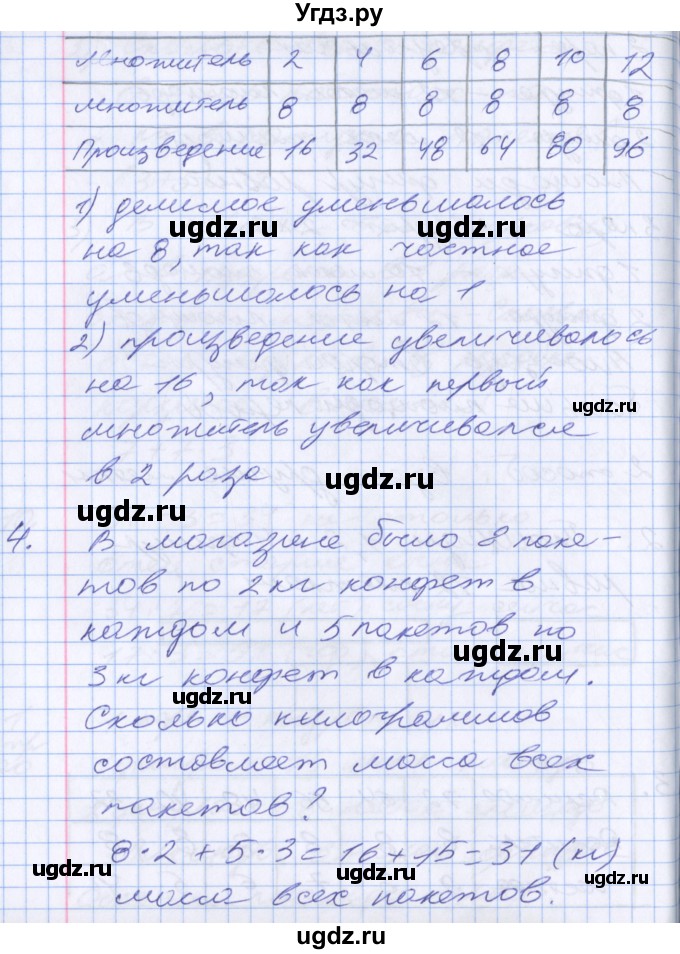 Угдз.ру
Множитель 2 4 6 8 10 12
множитель 8 8 8 8 8 8
Произведение 16 32 48 64 80 96
1) делимое уменьшалось
на 8, так как частное
уменьшалось на 1
2) произведение увеличивалось
на 16, так как первый
множитель увеличивался
в 2 раза
4. В магазине было 8 паке-
тов по 2 кг конфет в
каждом и 5 пакетов по
3 кг конфет в каждом.
Сколько килограммов
составляет масса всех
пакетов?
8·2+5·3=16+15=31 (кг)
масса всех пакетов.
ugdz.ru
ugdz.ru
ugdz.ru
ugdz.ru
ugdz.ru
ugdz.ru
ugdz.ru
ugdz.ru
ugdz.ru
ugdz.ru
ugdz.ru
ugdz.ru
ugdz.ru
ugdz.ru